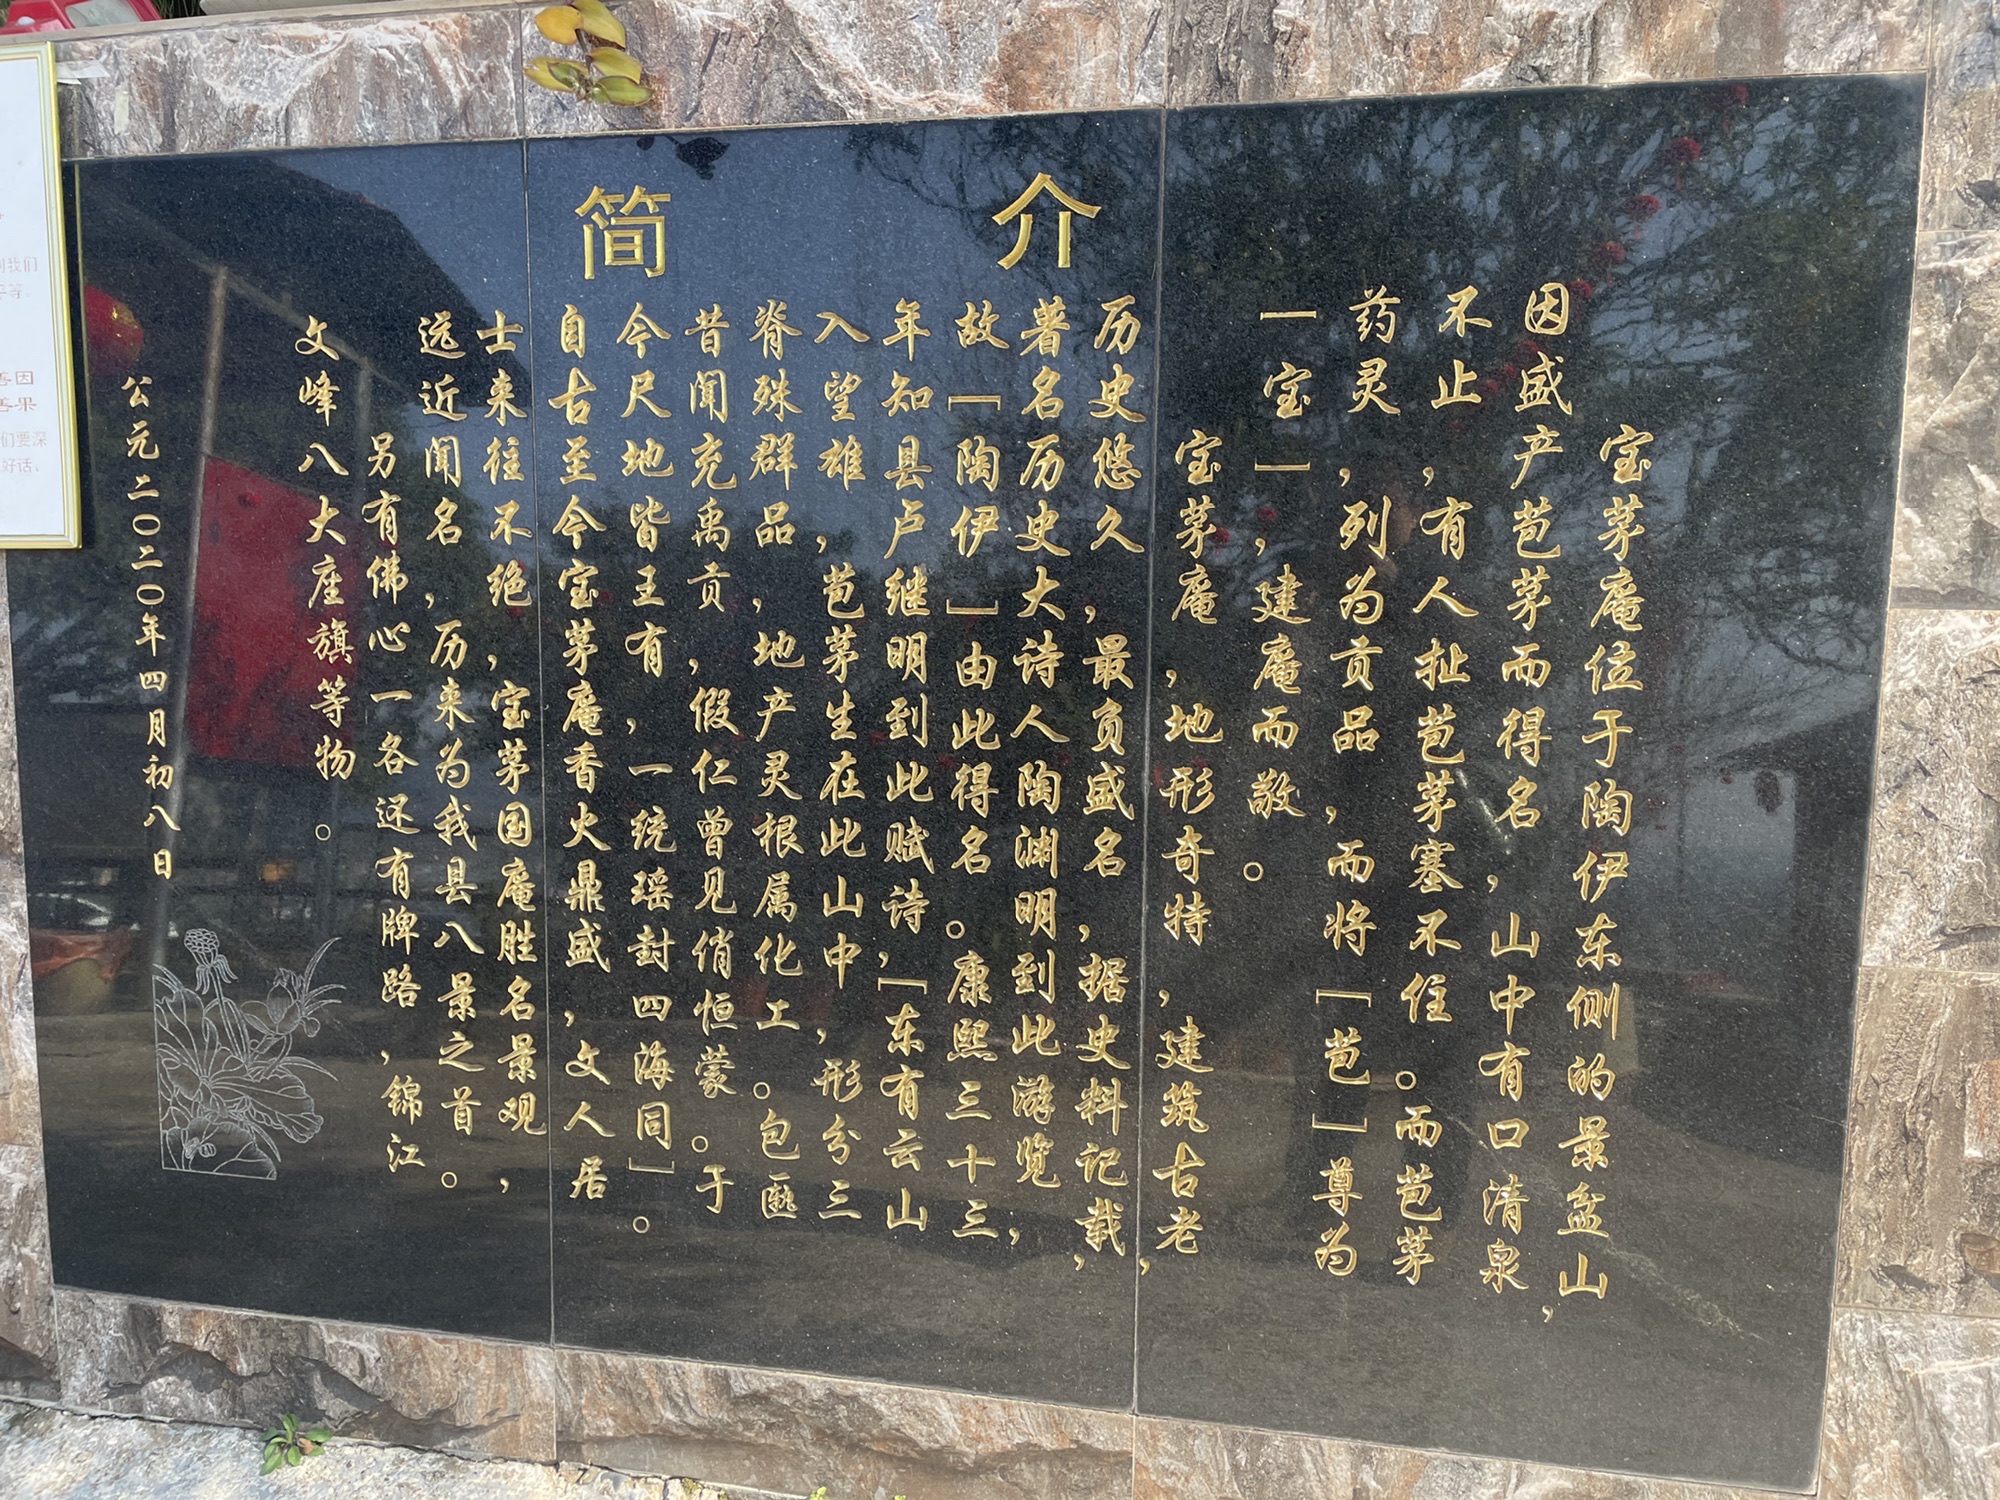 简介
宝茅庵位于陶伊东侧的景盆山
因盛产苞茅而得名，山中有口清泉，
不止，有人扯苞茅塞不住。而苞茅
药灵，列为贡品，而将［苞］尊为
［宝］，建庵而敬。
宝茅庵，地形奇特，建筑古老，
历史悠久，最负盛名，据史料记载，
著名历史大诗人陶渊明到此游览，
故［陶伊］由此得名。康熙三十三
年知县卢继明到此赋诗，［东有云山
入望雄，苞茅生在此山中，形分三
脊殊群品，地产灵根属化工。包匦
昔闻充禹贡，假仁曾见俏恒蒙。于
今尺地皆王有，一统瑶封四海同］。
自古至今宝茅庵香火鼎盛，文人居
士来往不绝，宝茅国庵胜名景观，
远近闻名，历来为我县八景之首。
另有佛心一各还有牌路，锦江
文峰八大座旗等物。
公元二〇二〇年四月初八日
们我们
等。
善因
善果
们要深
好话、